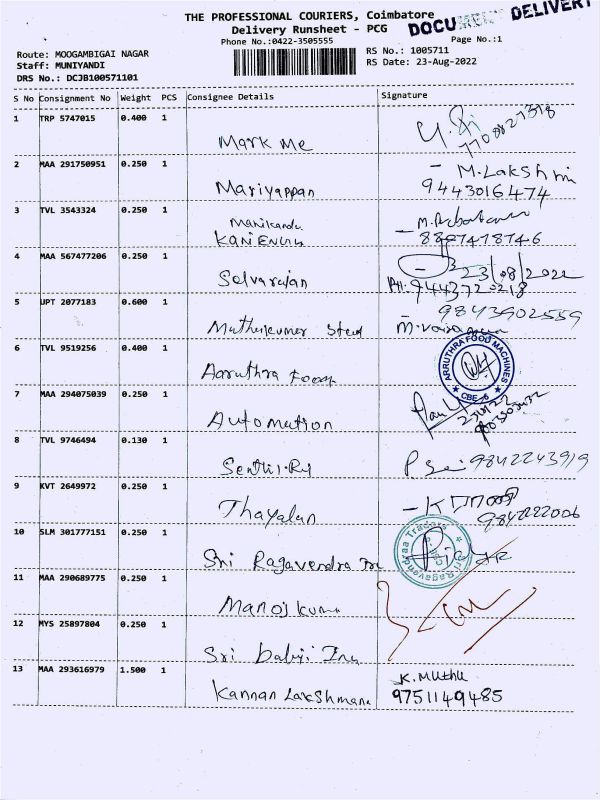 THE PROFESSIONAL COURIERS, Coimbatore
DELIVERY
Delivery Runsheet - PCG
Phone No.:0422-3505555
Page No.:1
Route: MOOGAMBIGAI NAGAR
Staff: MUNIYANDI
DRS No.: DCJB100571101
RS No.: 1005711
RS Date: 23-Aug-2022
S No Consignment No Weight PCS Consignee Details Signature
1 TRP 5747015 0.400 1
Mark me
2 MAA 291750951 0.250 1
Mariyappan
M.Lakshmi
9443016474
3 TVL 3543324 0.250 1
4 MAA 567477206 0.250 1
Selvarajan
23/08/2022
5 UPT 2077183 0.600 1
Muthukumar Steel
9843902559
6 TVL 9519256 0.400 1
Aaruthra Foods
ARRUTHRA FOOD MACHINES
CBE-6
7 MAA 294075039 0.250 1
Automation
8 TVL 9746494 0.130 1
9842243919
9 KVT 2649972 0.250 1
Thayalan
9842222006
10 SLM 301777151 0.250 1
Sri Ragavendra
Sri Ragavendraa Traders
11 MAA 290689775 0.250 1
Manojkumar
12 MYS 25897804 0.250 1
Sri Balaji
13 MAA 293616979 1.500 1
Kannan Lakshmana
K.Muthu
9751149485